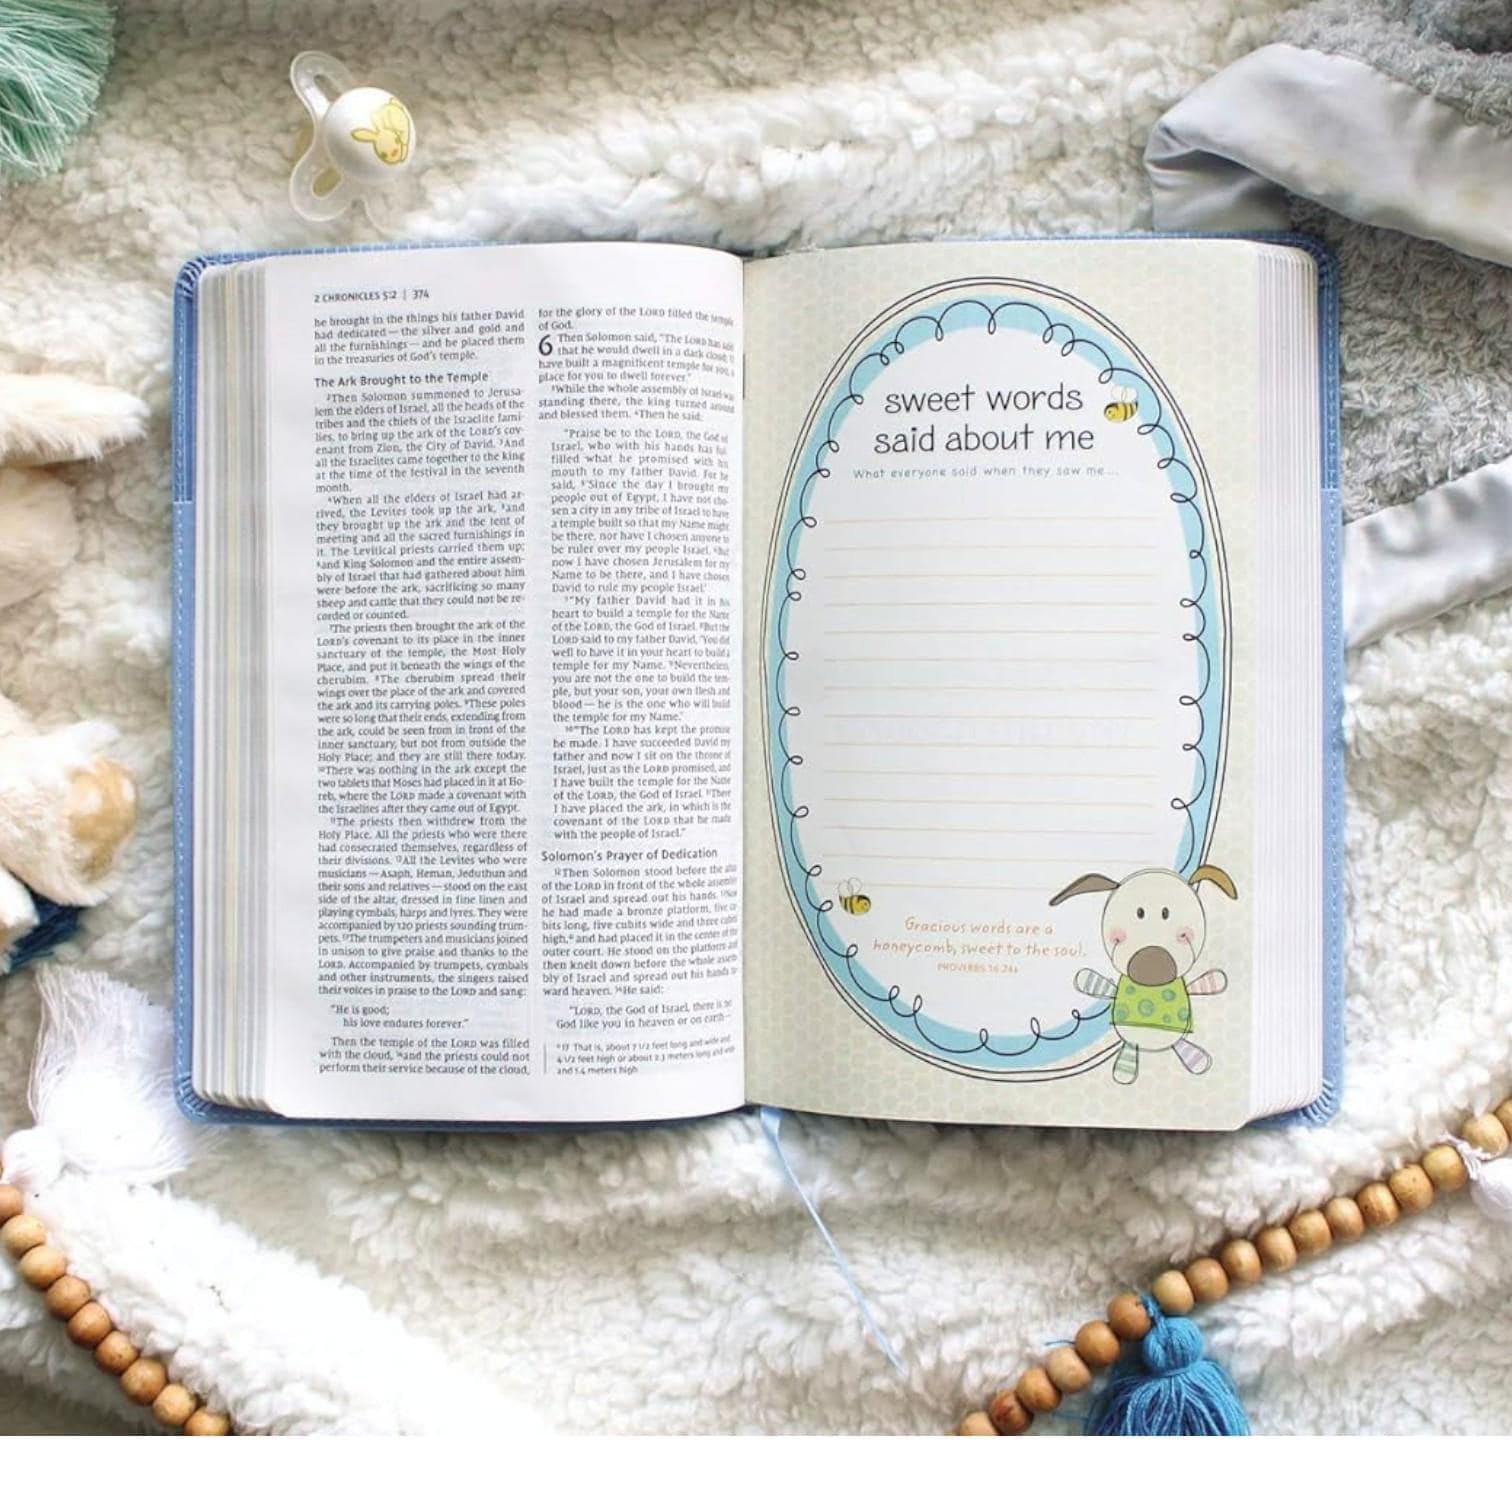 2 CHRONICLES 5:2 | 374
he brought in the things his father David
had dedicated — the silver and gold and
all the furnishings — and he placed them
in the treasuries of God's temple.
The Ark Brought to the Temple
²Then Solomon summoned to Jerusa-
lem the elders of Israel, all the heads of the
tribes and the chiefs of the Israelite fami-
lies, to bring up the ark of the LORD's cov-
enant from Zion, the City of David. ³And
all the Israelites came together to the king
at the time of the festival in the seventh
month.
⁴When all the elders of Israel had ar-
rived, the Levites took up the ark, ⁵and
they brought up the ark and the tent of
meeting and all the sacred furnishings in
it. The Levitical priests carried them up;
⁶and King Solomon and the entire assem-
bly of Israel that had gathered about him
were before the ark, sacrificing so many
sheep and cattle that they could not be re-
corded or counted.
⁷The priests then brought the ark of the
LORD's covenant to its place in the inner
sanctuary of the temple, the Most Holy
Place, and put it beneath the wings of the
cherubim. ⁸The cherubim spread their
wings over the place of the ark and covered
the ark and its carrying poles. ⁹These poles
were so long that their ends, extending from
the ark, could be seen from in front of the
inner sanctuary, but not from outside the
Holy Place; and they are still there today.
¹⁰There was nothing in the ark except the
two tablets that Moses had placed in it at Ho-
reb, where the LORD made a covenant with
the Israelites after they came out of Egypt.
¹¹The priests then withdrew from the
Holy Place. All the priests who were there
had consecrated themselves, regardless of
their divisions. ¹²All the Levites who were
musicians — Asaph, Heman, Jeduthun and
their sons and relatives — stood on the east
side of the altar, dressed in fine linen and
playing cymbals, harps and lyres. They were
accompanied by 120 priests sounding trum-
pets. ¹³The trumpeters and musicians joined
in unison to give praise and thanks to the
LORD. Accompanied by trumpets, cymbals
and other instruments, the singers raised
their voices in praise to the LORD and sang:
"He is good;
his love endures forever."
Then the temple of the LORD was filled
with the cloud, ¹⁴and the priests could not
perform their service because of the cloud,
for the glory of the LORD filled the temple
of God.
6 Then Solomon said, "The LORD has said
that he would dwell in a dark cloud; ²I
have built a magnificent temple for you, a
place for you to dwell forever."
³While the whole assembly of Israel was
standing there, the king turned around
and blessed them. ⁴Then he said:
"Praise be to the LORD, the God of
Israel, who with his hands has ful-
filled what he promised with his
mouth to my father David. For he
said, ⁵'Since the day I brought my
people out of Egypt, I have not cho-
sen a city in any tribe of Israel to have
a temple built so that my Name might
be there, nor have I chosen anyone to
be ruler over my people Israel. ⁶But
now I have chosen Jerusalem for my
Name to be there, and I have chosen
David to rule my people Israel.'
⁷"My father David had it in his
heart to build a temple for the Name
of the LORD, the God of Israel. ⁸But the
LORD said to my father David, 'You did
well to have it in your heart to build a
temple for my Name. ⁹Nevertheless,
you are not the one to build the tem-
ple, but your son, your own flesh and
blood — he is the one who will build
the temple for my Name.'
¹⁰"The LORD has kept the promise
he made. I have succeeded David my
father and now I sit on the throne of
Israel, just as the LORD promised, and
I have built the temple for the Name
of the LORD, the God of Israel. ¹¹There
I have placed the ark, in which is the
covenant of the LORD that he made
with the people of Israel."
Solomon's Prayer of Dedication
¹²Then Solomon stood before the altar
of the LORD in front of the whole assembly
of Israel and spread out his hands. ¹³Now
he had made a bronze platform, five cu-
bits long, five cubits wide and three cubits
high,ᵃ and had placed it in the center of the
outer court. He stood on the platform and
then knelt down before the whole assem-
bly of Israel and spread out his hands to-
ward heaven. ¹⁴He said:
"LORD, the God of Israel, there is no
God like you in heaven or on earth —
ᵃ 13 That is, about 7 1/2 feet long and wide and
4 1/2 feet high or about 2.3 meters long and wide
and 1.4 meters high
sweet words
said about me
What everyone said when they saw me...
Gracious words are a
honeycomb, sweet to the soul.
PROVERBS 16:24a